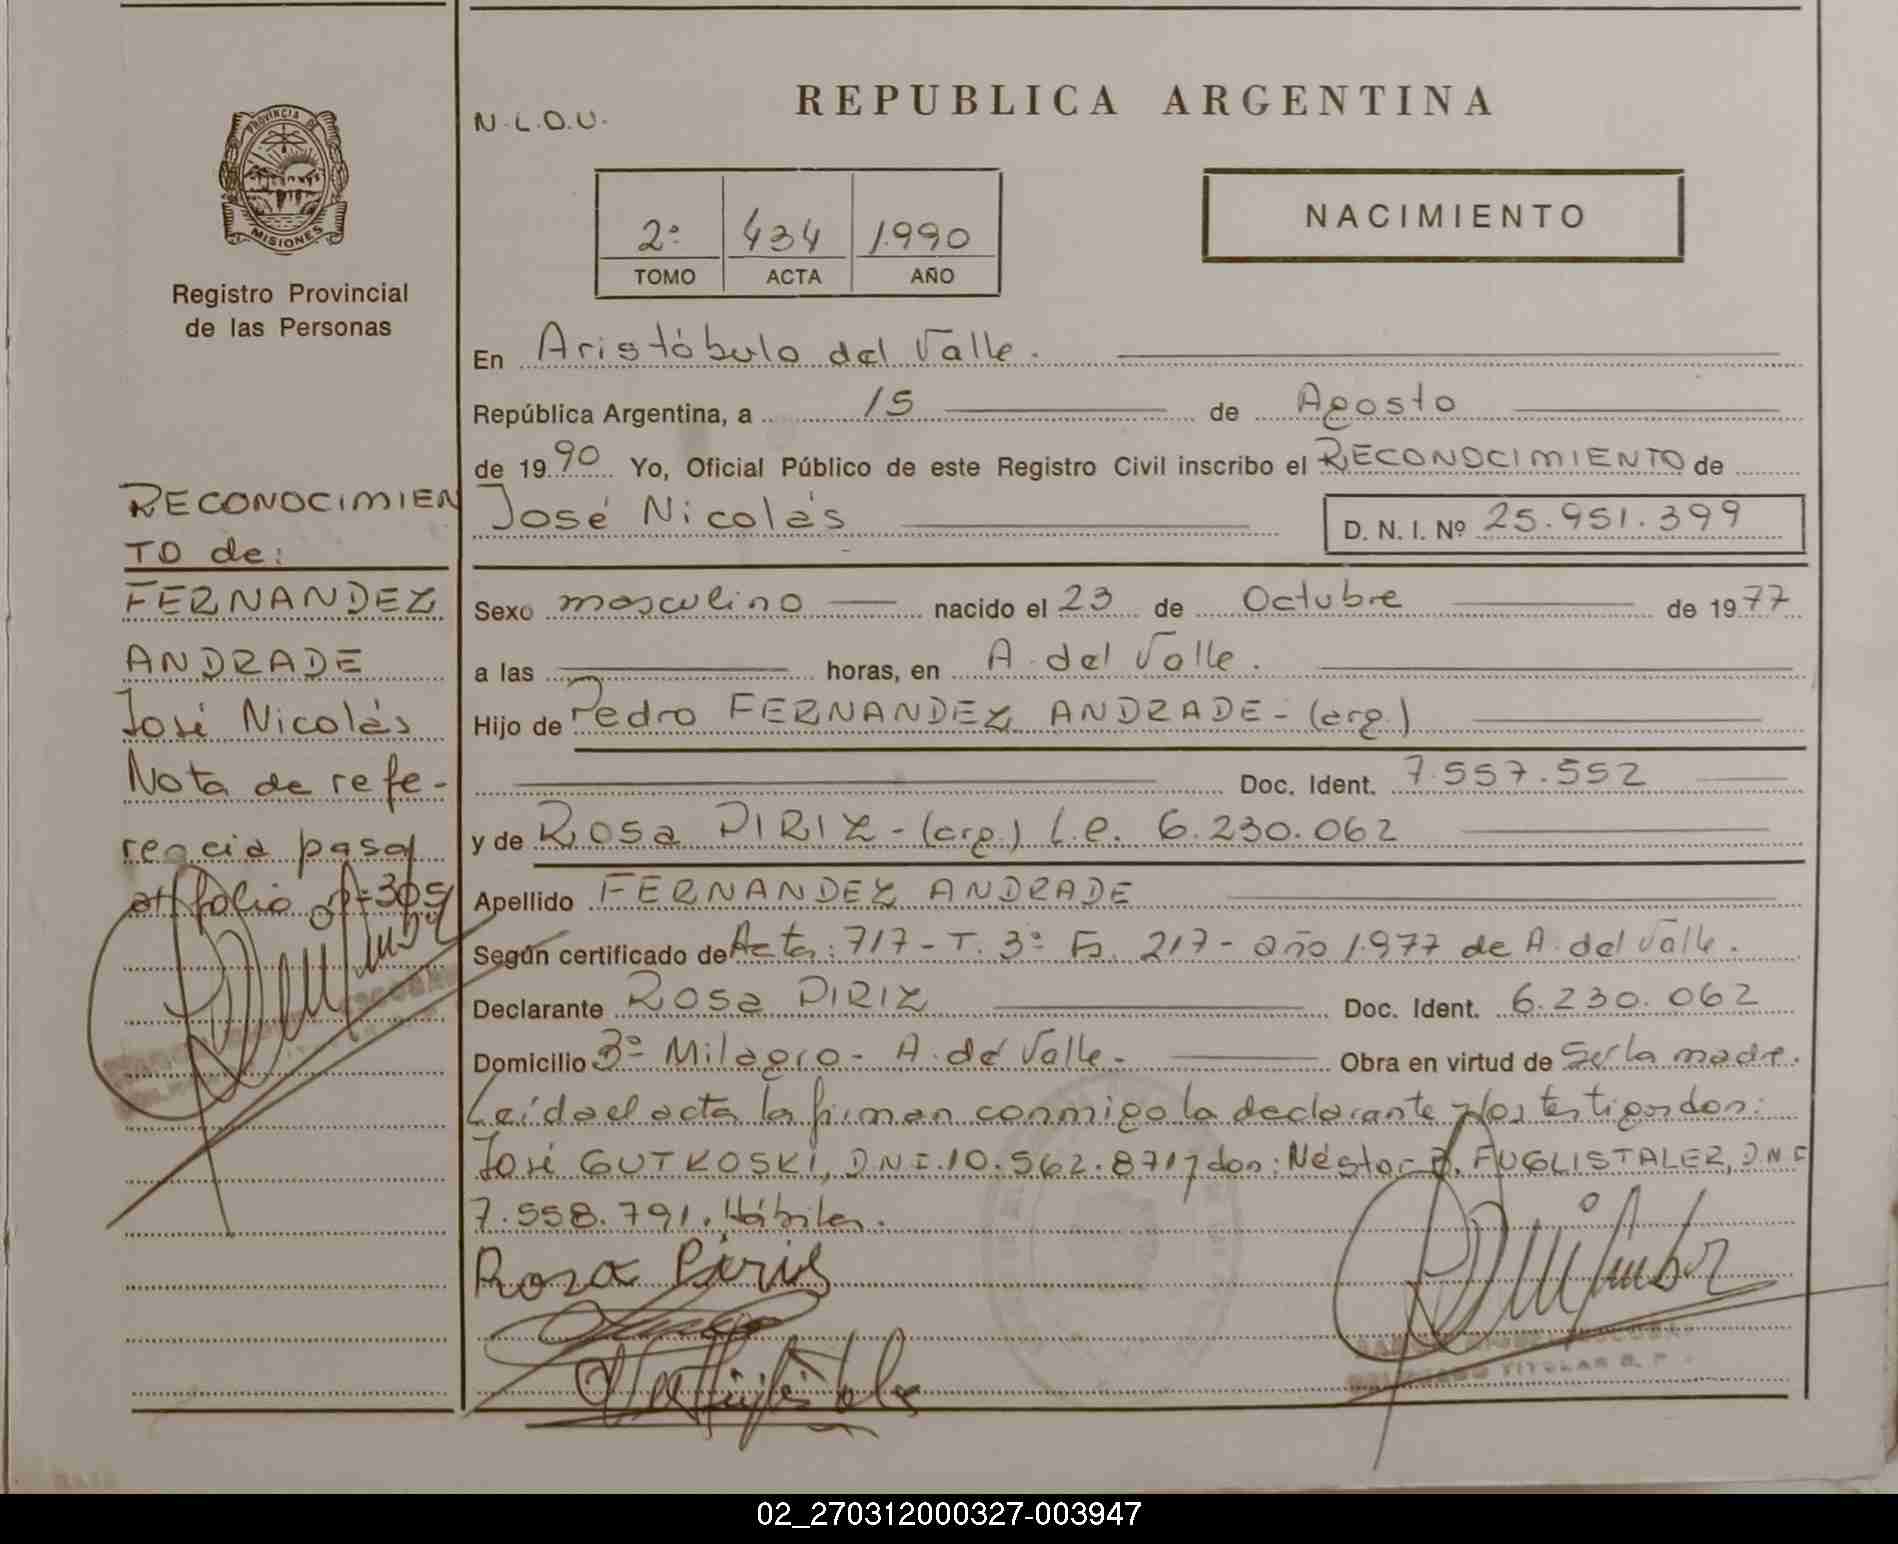 PROVINCIA DE
MISIONES
Registro Provincial
de las Personas
RECONOCIMIEN
TO de:
FERNANDEZ
ANDRADE
José Nicolás
Nota de refe-
rencia pasa
al folio nº 305
N.L.O.U.
REPUBLICA ARGENTINA
2º 434 1.990
TOMO ACTA AÑO
NACIMIENTO
En Aristóbulo del Valle.
República Argentina, a 15 de Agosto
de 1990 Yo, Oficial Público de este Registro Civil inscribo el RECONOCIMIENTO de
José Nicolás D. N. I. Nº 25.951.399
Sexo masculino nacido el 23 de Octubre de 1977
a las horas, en A. del Valle.
Hijo de Pedro FERNANDEZ ANDRADE - (arg.)
Doc. Ident. 7.557.552
y de Rosa PIRIZ - (arg.) L.e. 6.230.062
Apellido FERNANDEZ ANDRADE
Según certificado de Acta: 717 - T. 3º F. 217 - año 1.977 de A. del Valle.
Declarante Rosa PIRIZ Doc. Ident. 6.230.062
Domicilio 3º Milagro - A. del Valle. - Obra en virtud de Ser la madre.
Leída el acta la firman conmigo la declarante y los testigos don:
José GUTKOSKI, D.N.I. 10.562.871 y don: Néstor B. FUGLISTALER, D.N.I
7.558.791. Hábiles.
Rosa Piris
TITULAR
02_270312000327-003947